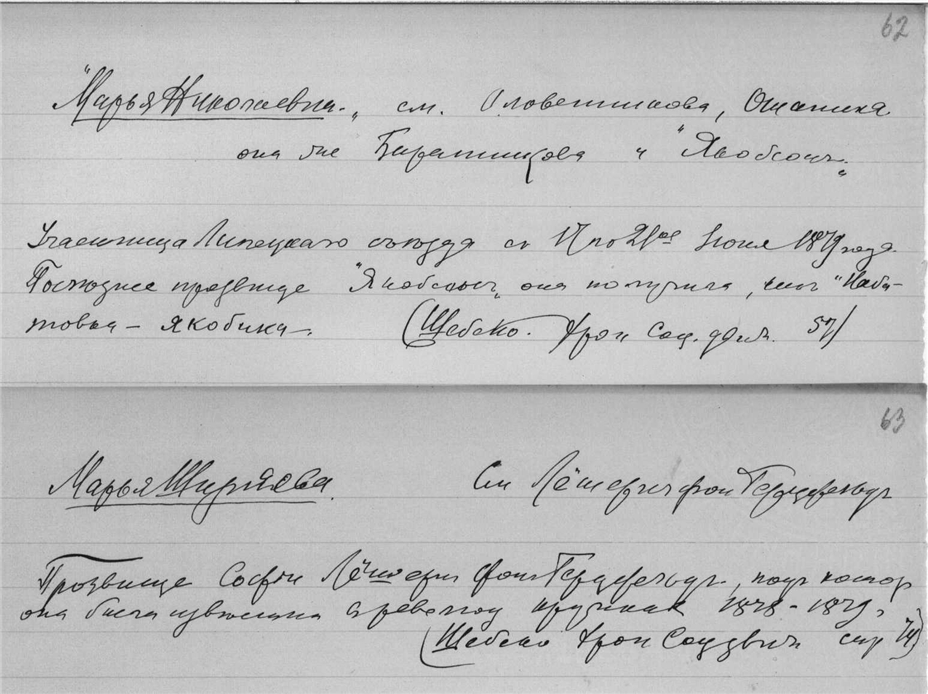 62
"Марья Николаевна" см. Оловенникова, Ошанина
она же Баранникова и "Якобсонъ"
Участница Липецкаго съѣзда съ 17 по 21ое Iюня 1879 года
прозвище "Якобсонъ" она получила,
якобинка. (Шебеко. Хрон Соц. движ. 57)
63
Марья Ширяева. См Лёшернъ фонъ Герцфельдъ
Прозвище Софiи Лёшернъ фонъ Герцфельдъ, подъ котор
она была извѣстна в револ кружкахъ 1878-1879 г
(Шебеко Хрон Соц движ стр 74)